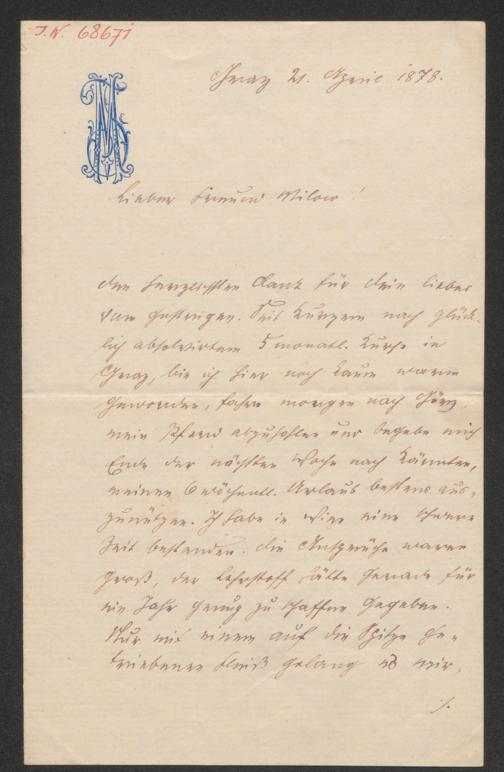 J.N. 68671
Graz 21. April 1878.
Lieber Freund Milow!
den herzlichsten Dank für dein liebes
vom gestrigen. Seit Kurzem nach glück-
lich absolvirtem 5 monatl. Kurse in
Graz, bin ich hier noch kaum warm
geworden, fahre morgen nach Görz,
mein Pferd abzuholen und begebe mich
Ende der nächsten Woche nach Kärnten,
meinen 6 wöchentl. Urlaub bestens aus-
zunützen. Ich habe in Wien eine schwere
Zeit bestanden. Die Ansprüche waren
groß, der Lehrstoff hätte gerade für
ein Jahr genug zu schaffen gegeben.
Nur mit einem auf die Spitze ge-
triebenen Fleiß gelang es mir,
./.